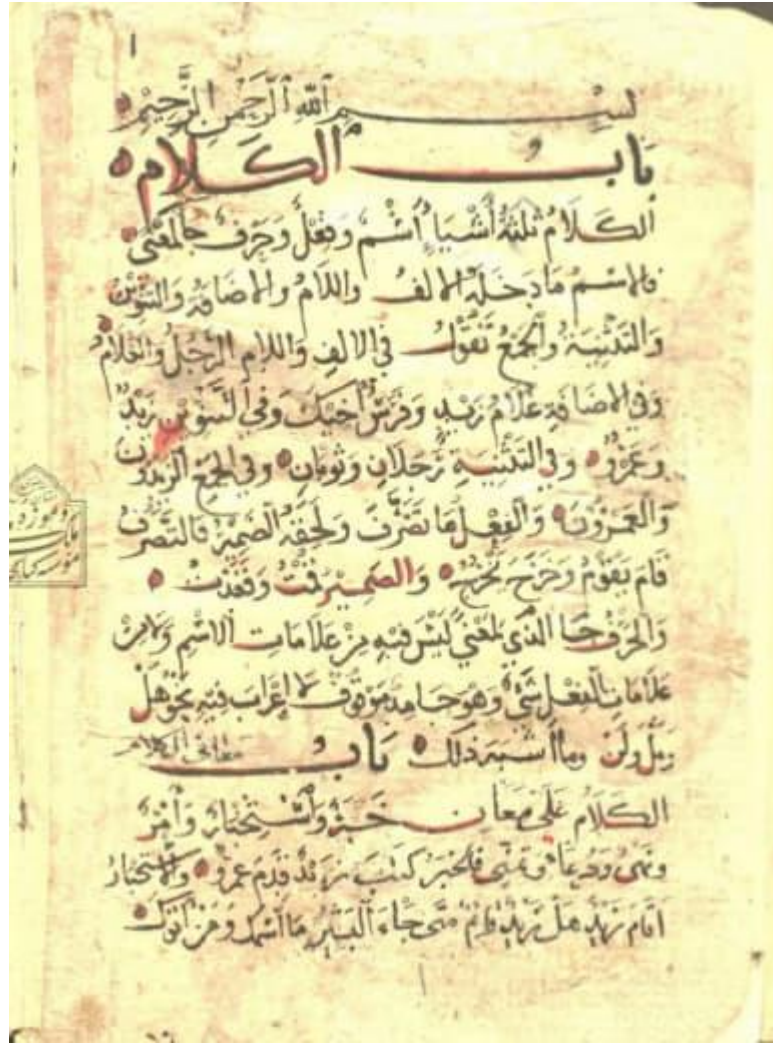 ١
بسم الله الرحمن الرحيم
باب الكلام
الكلام ثلثة أشياء اسم وفعل وحرف جا لمعنى
فالاسم ما دخله الالف واللام والاضافة والتنوين
والتثنية والجمع تقول في الالف واللام الرجل والغلام
وفي الاضافة غلام زيد وفرس اخيك وفي التنوين زيد
وعمرو وفي التثنية رجلان وثوبان وفي الجمع الزيدون
والعمرون والفعل ما تصرف ولحقه الضمير فالتصرف
قام يقوم وخرج يخرج والضمير قمت وقعدت
والحرف جا الذي لمعنى ليس فيه من علامات الاسم ولا من
علامات الفعل شي وهو جامد موقوف لا إعراب فيه نحو هل
وبل ولن وما أشبه ذلك باب معاني الكلام
الكلام على معان خبر واستخبار وأمر
ونهي ودعا وتمني فالخبر كتب زيد قدم عمرو والاستخبار
اقام زيد هل زيد قائم متى جاء البشير ما اسمك ومن ابوك